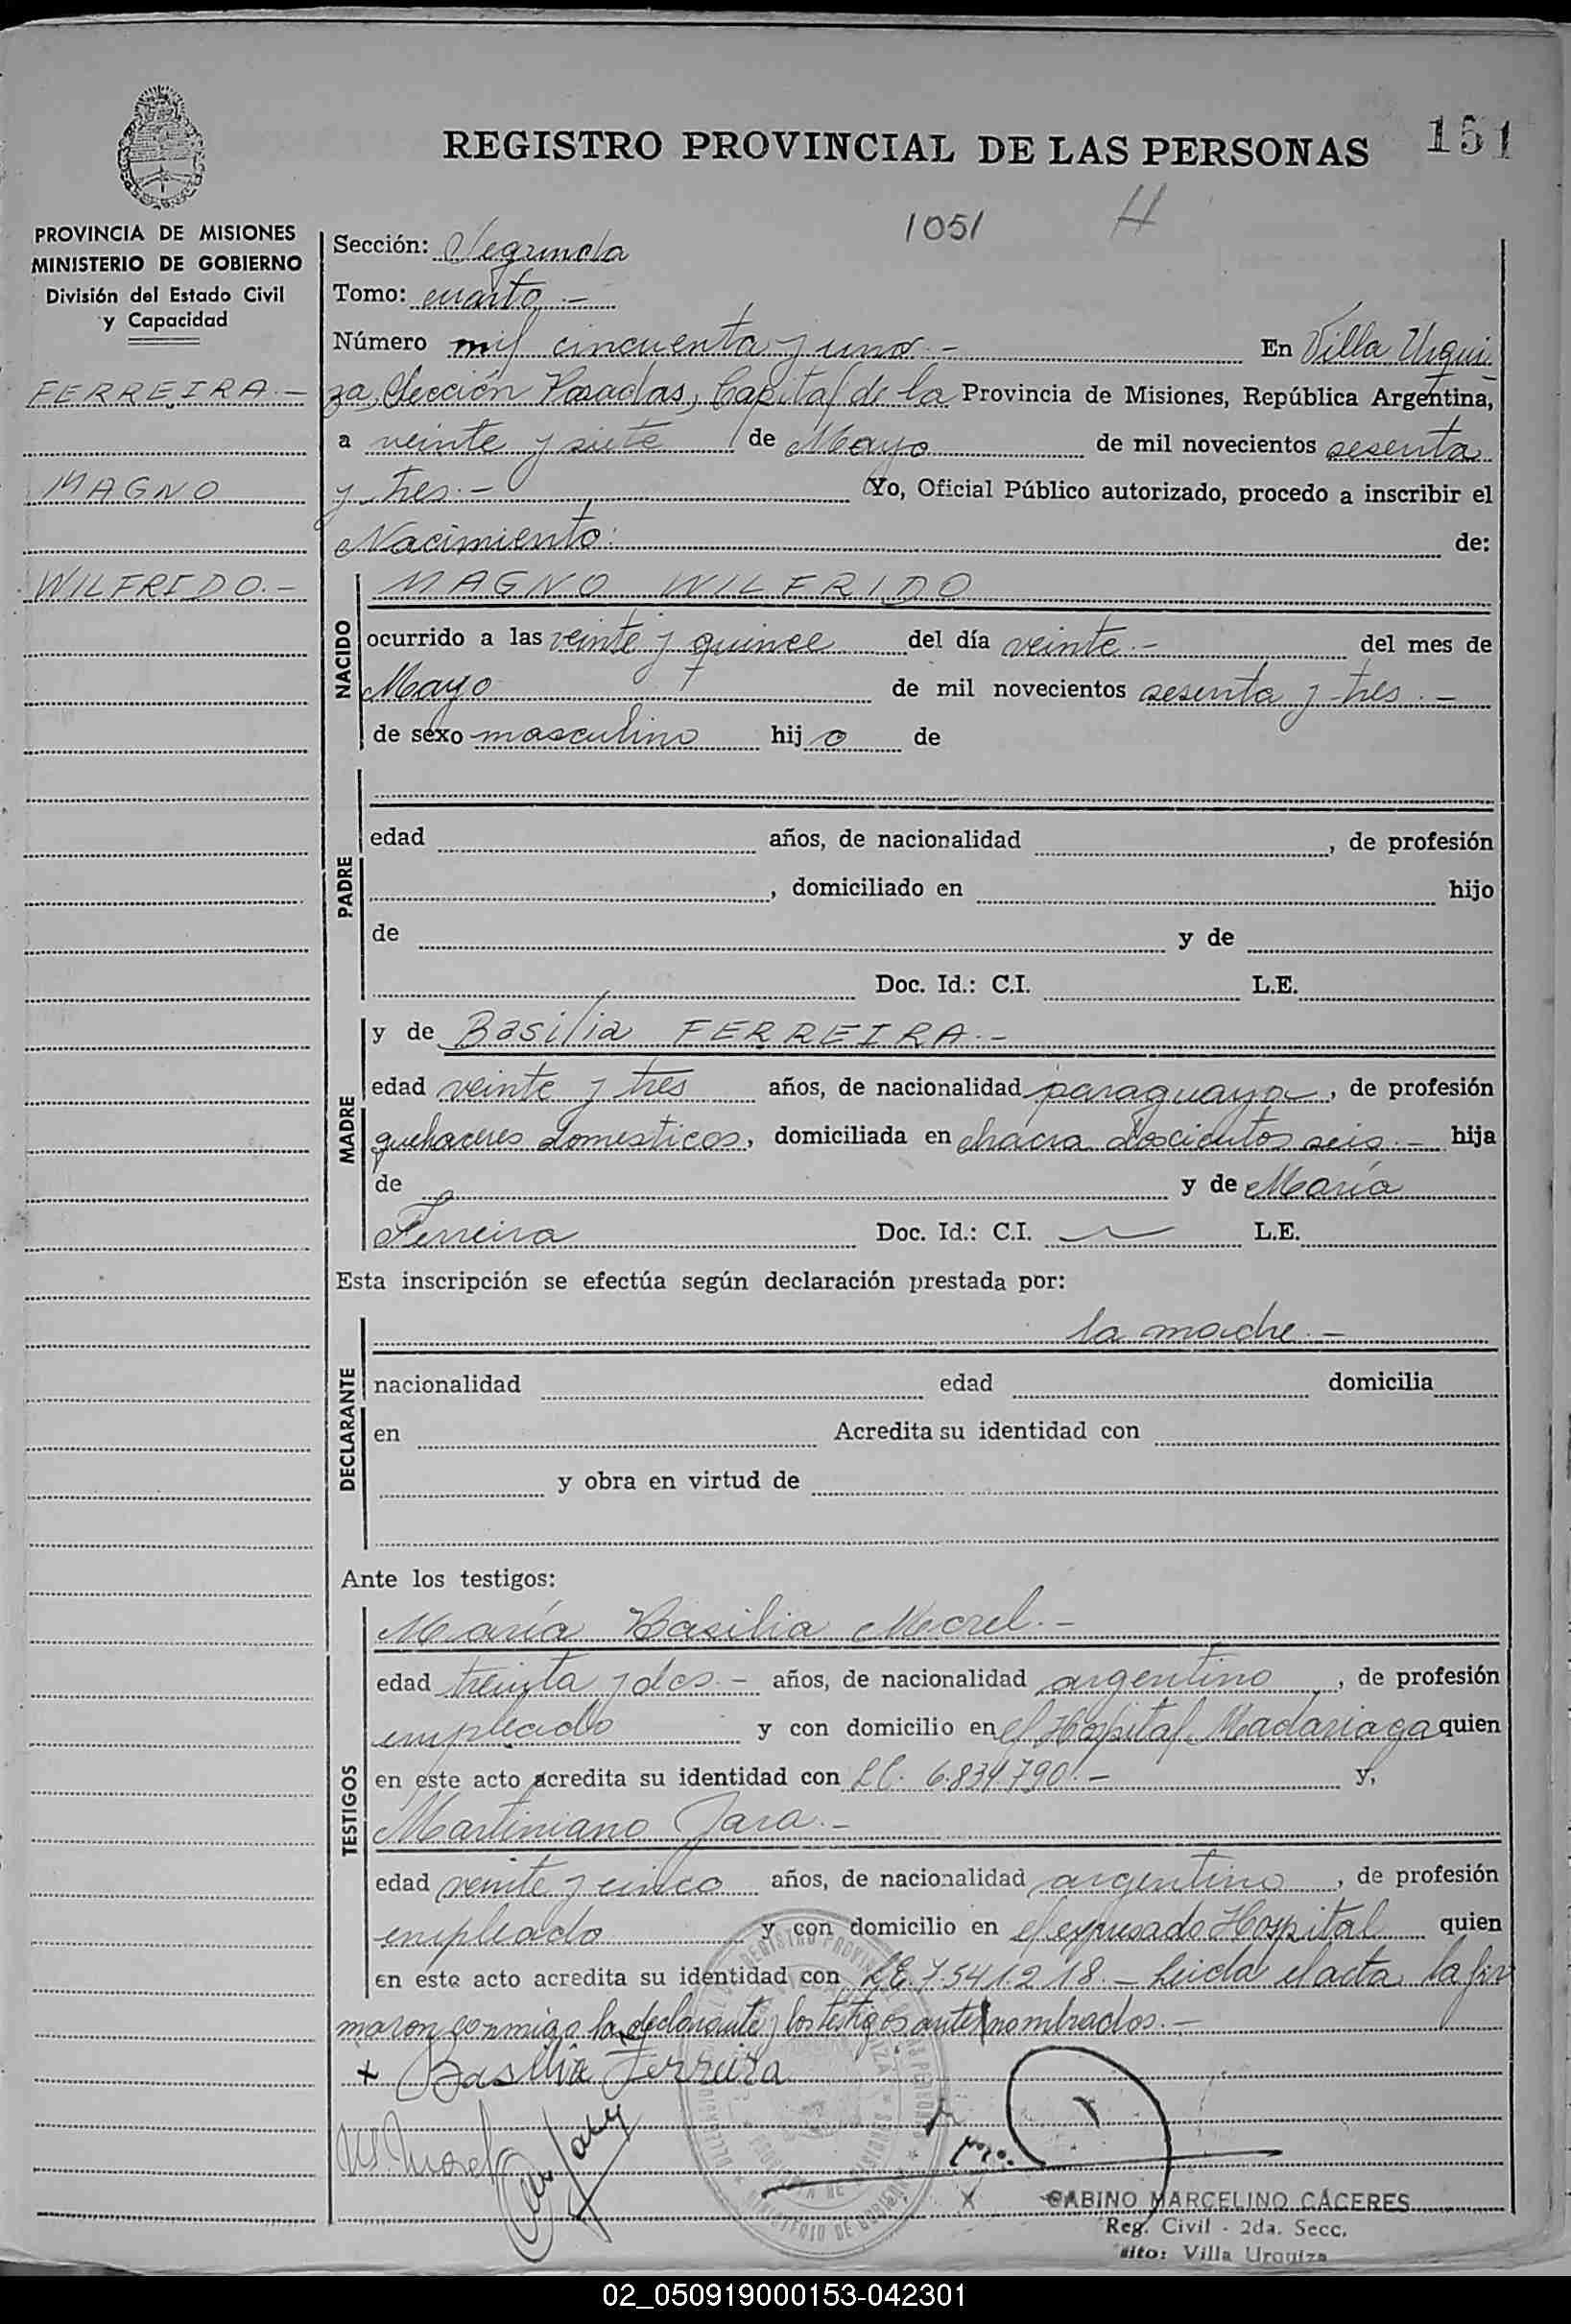 REGISTRO PROVINCIAL DE LAS PERSONAS 151
1051 H
PROVINCIA DE MISIONES
MINISTERIO DE GOBIERNO
División del Estado Civil
y Capacidad
FERREIRA.-
MAGNO
WILFRIDO.-
Sección: Segunda
Tomo: cuarto.-
Número mil cincuenta y uno.- En Villa Urqui
za, Sección Posadas, Capital de la Provincia de Misiones, República Argentina,
a veinte y siete de Mayo de mil novecientos sesenta
y tres.- Yo, Oficial Público autorizado, procedo a inscribir el
Nacimiento: de:
NACIDO
MAGNO WILFRIDO
ocurrido a las veinte y quince del día veinte.- del mes de
Mayo de mil novecientos sesenta y tres.-
de sexo masculino hijo de
PADRE
edad años, de nacionalidad , de profesión
, domiciliado en hijo
de y de
Doc. Id.: C.I. L.E.
MADRE
y de Basilia FERREIRA.-
edad veinte y tres años, de nacionalidad paraguaya, de profesión
quehaceres domesticos, domiciliada en chacra doscientos seis.- hija
de y de María
Ferreira Doc. Id.: C.I. L.E.
Esta inscripción se efectúa según declaración prestada por:
DECLARANTE
la madre.-
nacionalidad edad domicilia
en Acredita su identidad con
y obra en virtud de
Ante los testigos:
TESTIGOS
María Basilia Morel.-
edad treinta y dos.- años, de nacionalidad argentino, de profesión
empleado y con domicilio en el Hospital Madariaga quien
en este acto acredita su identidad con LC. 6.834.790.- y,
Martiniano Jara.-
edad veinte y cinco años, de nacionalidad argentino, de profesión
empleado y con domicilio en el expresado Hospital quien
en este acto acredita su identidad con L.E. 7.541.218.- Leida el acta la fir
maron conmigo la declarante y los testigos antes nombrados.-
x Basilia Ferreira
GABINO MARCELINO CÁCERES
Reg. Civil - 2da. Secc.
Villa Urquiza
02_050919000153-042301